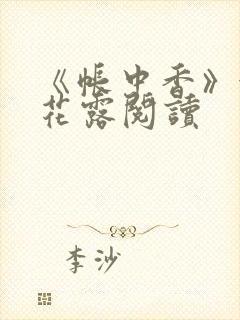 《帳中香》
花露閱讀
李沙